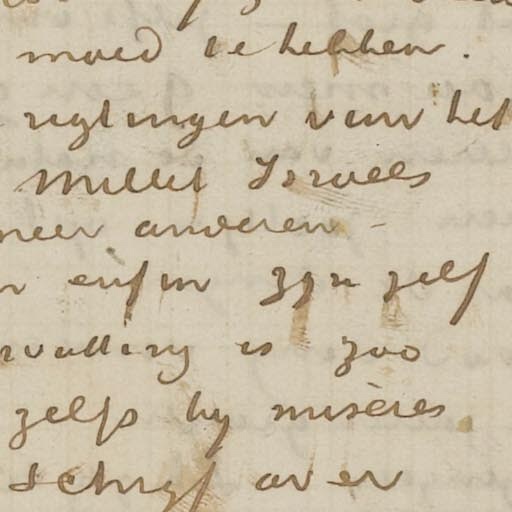 moed te hebben.
rigtingen van het
Millet Israels
meer anderen -
en enfin zyn zelf
opvatting is zoo
zelfs by misères
Schryf over